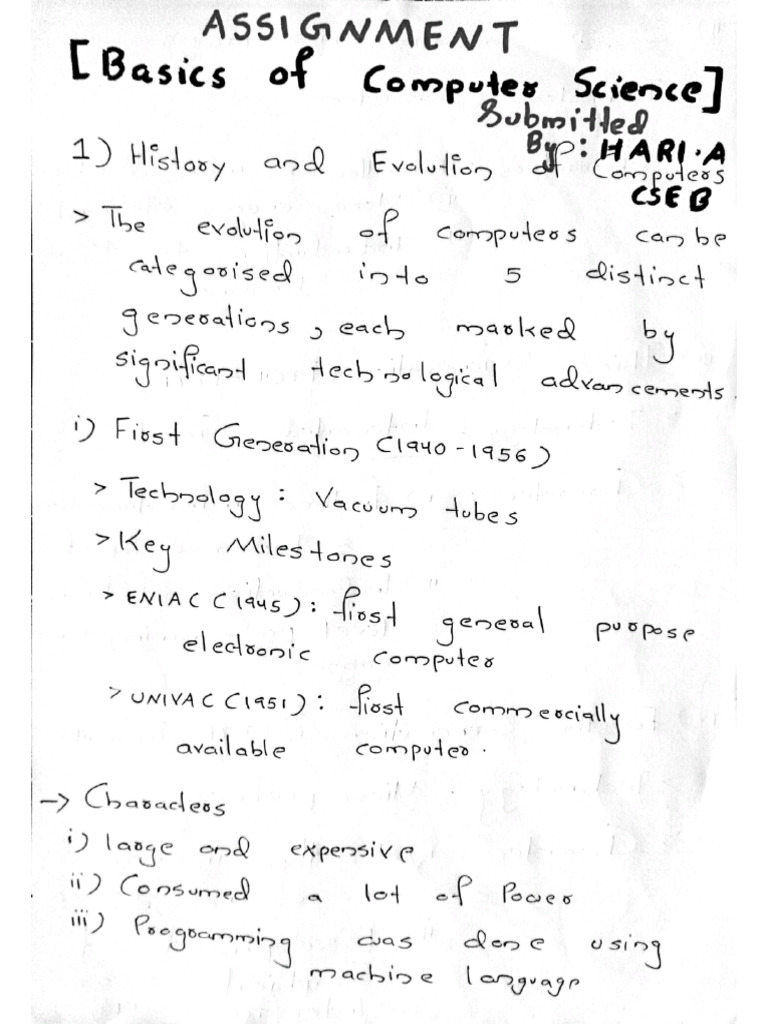 ASSIGNMENT
[Basics of Computer Science]
Submitted
By: HARI.A
CSE B
1) History and Evolution of Computers
> The evolution of computers can be
categorised into 5 distinct
generations, each marked by
significant technological advancements.
i) First Generation (1940-1956)
> Technology: Vacuum tubes
> Key Milestones
> ENIAC (1945): first general purpose
electronic computer
> UNIVAC (1951): first commercially
available computer.
-> Characters
i) large and expensive
ii) Consumed a lot of Power
iii) Programming was done using
machine language